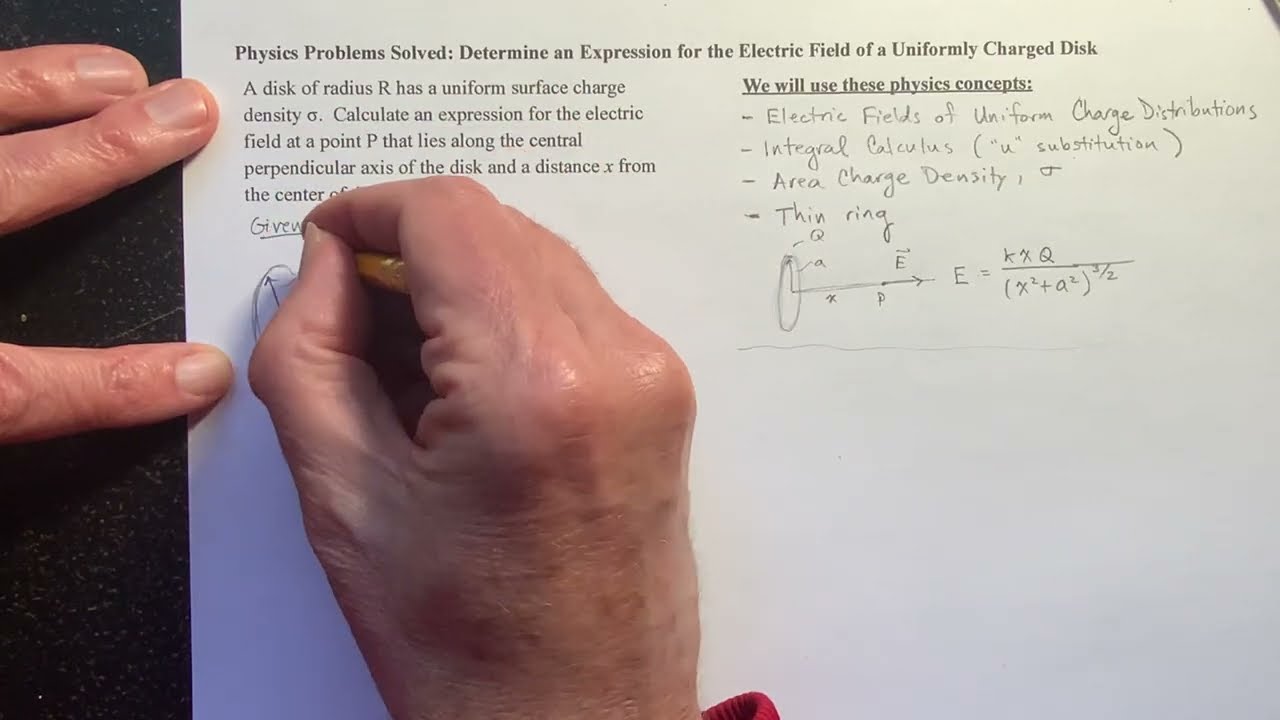 Physics Problems Solved: Determine an Expression for the Electric Field of a Uniformly Charged Disk
A disk of radius R has a uniform surface charge
density σ. Calculate an expression for the electric
field at a point P that lies along the central
perpendicular axis of the disk and a distance x from
the center of
Given
We will use these physics concepts:
- Electric Fields of Uniform Charge Distributions
- Integral Calculus ("u" substitution)
- Area Charge Density, σ
- Thin ring
Q
a
x
P
E⃗
E = kxQ / (x²+a²)^3/2